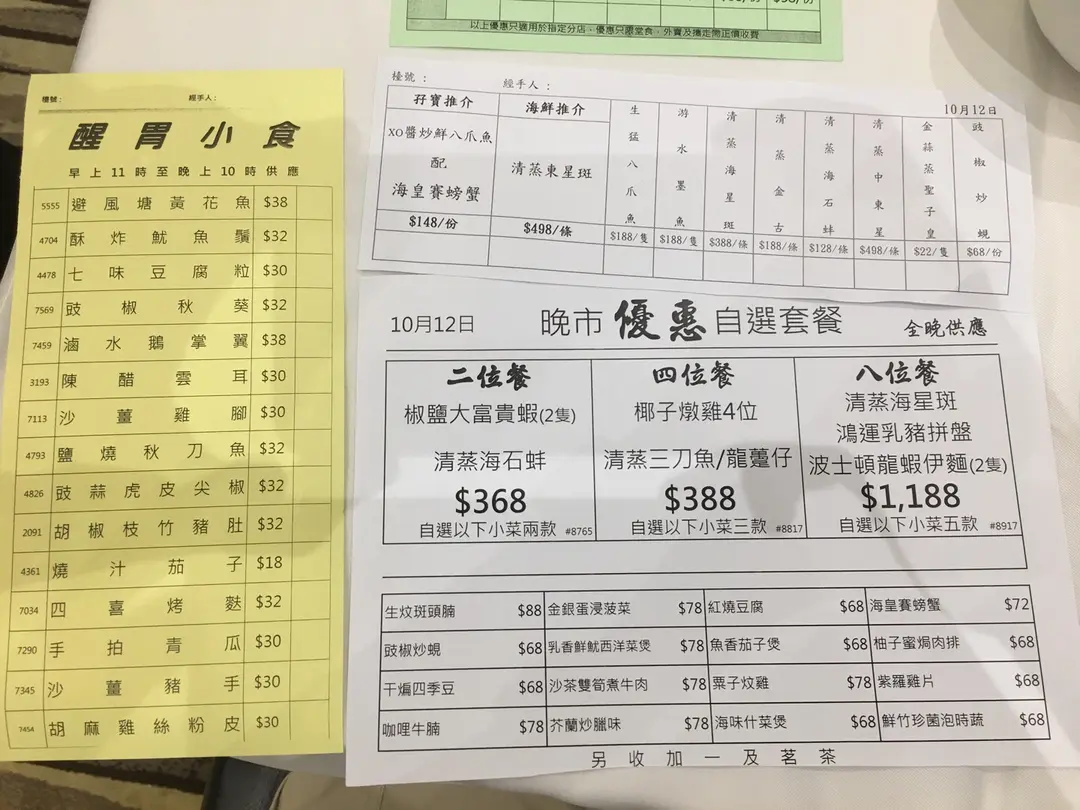 以上優惠只適用於指定分店，優惠只限堂食，外賣及攜走需正價收費
檯號：
經手人：
醒胃小食
早上11時至晚上10時供應
5555 避風塘黃花魚 $38
4704 酥炸魷魚鬚 $32
4478 七味豆腐粒 $30
7569 豉椒秋葵 $32
7459 滷水鵝掌翼 $38
3193 陳醋雲耳 $30
7113 沙薑雞腳 $30
4793 鹽燒秋刀魚 $32
4826 豉蒜虎皮尖椒 $32
2091 胡椒枝竹豬肚 $32
4361 燒汁茄子 $18
7034 四喜烤麩 $32
7290 手拍青瓜 $30
7345 沙薑豬手 $30
7454 胡麻雞絲粉皮 $30
檯號：
經手人：
10月12日
孖寶推介
XO醬炒鮮八爪魚
配
海皇賽螃蟹
$148/份
海鮮推介
清蒸東星斑
$498/條
生猛八爪魚
$188/隻
游水墨魚
$188/隻
清蒸海星斑
$388/條
清蒸金古
$188/條
清蒸海石蚌
$128/條
清蒸中東星
$498/條
金蒜蒸聖子皇
$22/隻
豉椒炒蜆
$68/份
10月12日 晚市優惠自選套餐 全晚供應
二位餐
椒鹽大富貴蝦(2隻)
清蒸海石蚌
$368
自選以下小菜兩款 #8765
四位餐
椰子燉雞4位
清蒸三刀魚/龍躉仔
$388
自選以下小菜三款 #8817
八位餐
清蒸海星斑
鴻運乳豬拼盤
波士頓龍蝦伊麵(2隻)
$1,188
自選以下小菜五款 #8917
生炆斑頭腩 $88 金銀蛋浸菠菜 $78 紅燒豆腐 $68 海皇賽螃蟹 $72
豉椒炒蜆 $68 乳香鮮魷西洋菜煲 $78 魚香茄子煲 $68 柚子蜜焗肉排 $68
干煸四季豆 $68 沙茶雙筍煮牛肉 $78 栗子炆雞 $78 紫羅雞片 $68
咖哩牛腩 $78 芥蘭炒臘味 $78 海味什菜煲 $68 鮮竹珍菌泡時蔬 $68
另收加一及茗茶